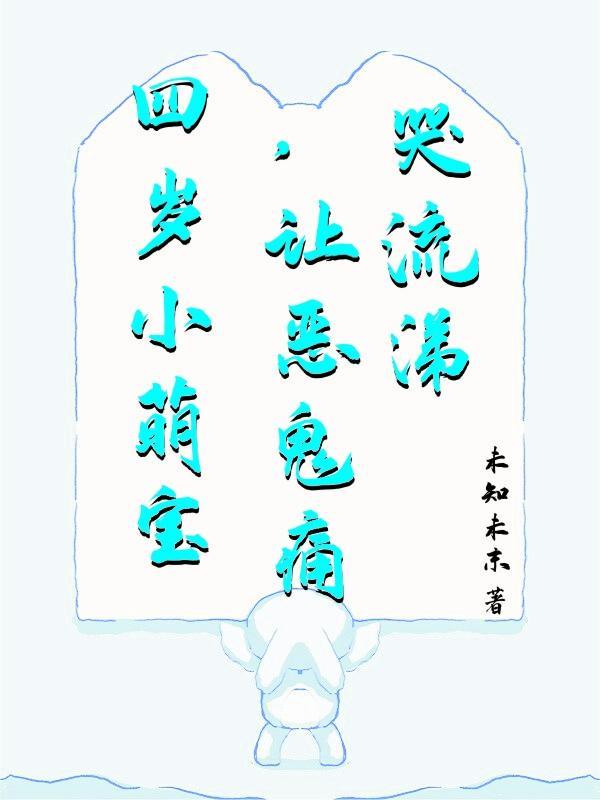 四岁小萌宝
，让恶鬼痛
哭流涕
未知未末 著